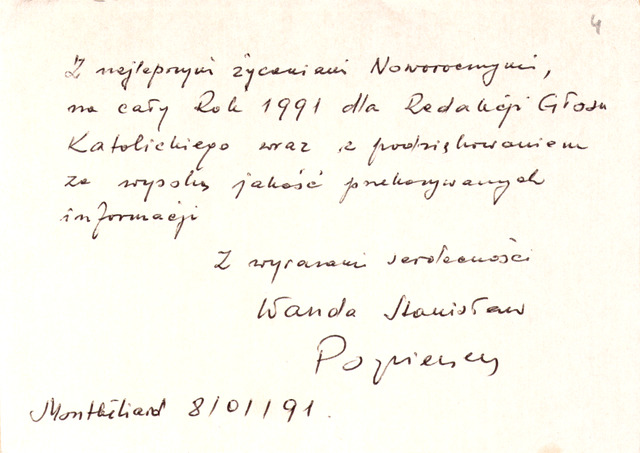 4
Z najlepszymi życzeniami Noworocznymi,
na cały Rok 1991 dla Redakcji Głosu
Katolickiego wraz z podziękowaniem
za wysoką jakość przekazywanych
informacji
Z wyrazami serdeczności
Wanda Stanisław
Montbéliard 8/01/91.